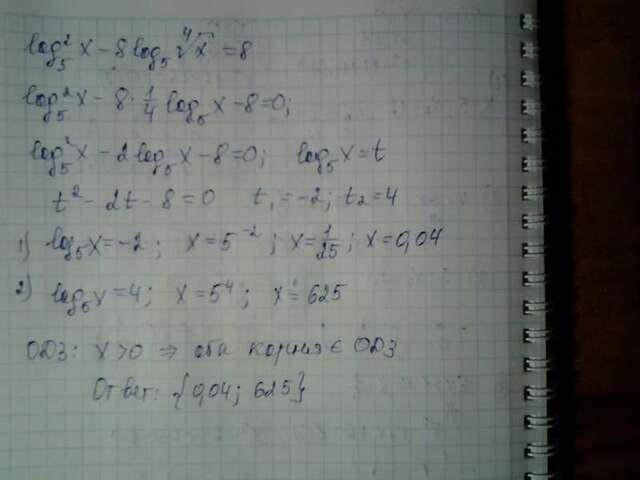 log₅²x - 8log₅⁴√x = 8
log₅²x - 8·1/4 log₅x - 8 = 0;
log₅²x - 2log₅x - 8 = 0; log₅x = t
t² - 2t - 8 = 0 t₁ = -2; t₂ = 4
1) log₅x = -2; x = 5⁻²; x = 1/25; x = 0,04
2) log₅x = 4; x = 5⁴; x = 625
ОДЗ: x > 0 ⇒ оба корня ∈ ОДЗ
Ответ: {0,04; 625}